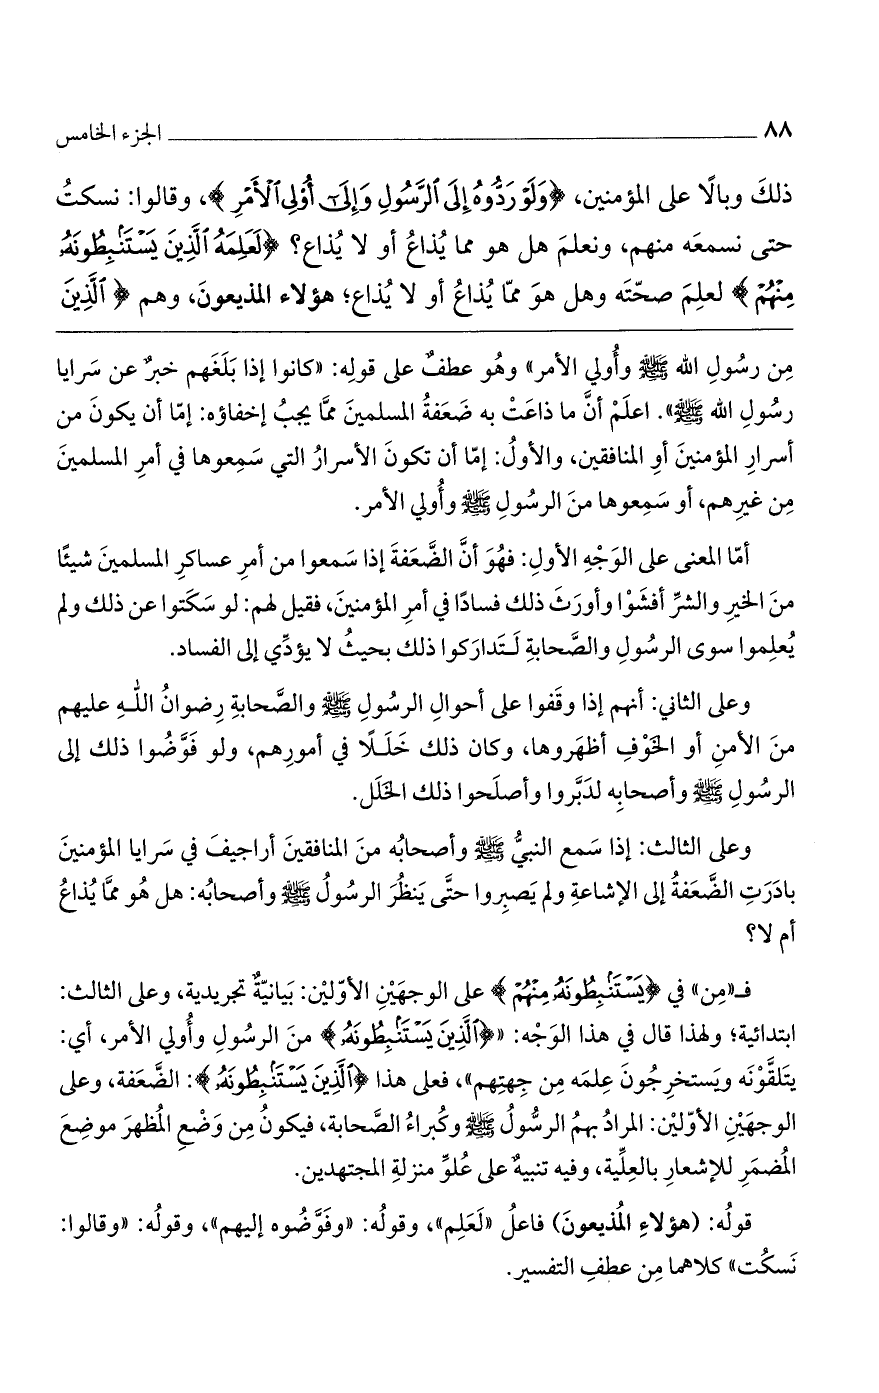 ٨٨ الجزء الخامس
ذلكَ وبالًا على المؤمنين، ﴿وَلَوْ رَدُّوهُ إِلَى ٱلرَّسُولِ وَإِلَىٰٓ أُوْلِى ٱلْأَمْرِ﴾، وقالوا: نسكتُ
حتى نسمعَه منهم، ونعلمَ هل هو مما يُذاعُ أو لا يُذاع؟ ﴿لَعَلِمَهُ ٱلَّذِينَ يَسْتَنۢبِطُونَهُۥ
مِنْهُمْ﴾ لعلِمَ صحّتَه وهل هوَ ممّا يُذاعُ أو لا يُذاع؛ هؤلاء المذيعونَ، وهم ﴿ٱلَّذِينَ
مِن رسُولِ الله ﷺ وأُولي الأمر» وهُو عطفٌ على قولِه: «كانوا إذا بَلَغَهم خبرٌ عن سَرايا
رسُولِ الله ﷺ». اعلَمْ أنَّ ما ذاعَتْ به ضَعَفةُ المسلمينَ ممَّا يجبُ إخفاؤه: إمّا أن يكونَ من
أسرارِ المؤمنينَ أوِ المنافقين، والأولُ: إمّا أن تكونَ الأسرارُ التي سَمِعوها في أمرِ المسلمينَ
مِن غيرِهم، أو سَمِعوها منَ الرسُولِ ﷺ وأُولي الأمر.
أمّا المعنى على الوَجْهِ الأولِ: فهُوَ أنَّ الضَّعَفةَ إذا سَمعوا من أمرِ عساكرِ المسلمينَ شيئًا
منَ الخيرِ والشرِّ أفشَوْا وأورَثَ ذلك فسادًا في أمرِ المؤمنينَ، فقيل لهم: لو سَكَتوا عن ذلك ولم
يُعلِموا سوى الرسُولِ والصَّحابةِ لَتدارَكوا ذلك بحيثُ لا يؤدِّي إلى الفساد.
وعلى الثاني: أنهم إذا وقَفوا على أحوالِ الرسُولِ ﷺ والصَّحابةِ رِضوانُ اللهِ عليهم
منَ الأمنِ أو الخَوْفِ أظهَروها، وكان ذلك خَلَلًا في أمورِهم، ولو فَوَّضُوا ذلك إلى
الرسُولِ ﷺ وأصحابِه لدَبَّروا وأصلَحوا ذلك الخَلَل.
وعلى الثالث: إذا سَمع النبيُّ ﷺ وأصحابُه منَ المنافقينَ أراجيفَ في سَرايا المؤمنينَ
بادَرَتِ الضَّعَفةُ إلى الإشاعةِ ولم يَصبِروا حتَّى يَنظُرَ الرسُولُ ﷺ وأصحابُه: هل هُو ممَّا يُذاعُ
أم لا؟
فـ«مِن» في ﴿يَسْتَنۢبِطُونَهُۥ مِنْهُمْ﴾ على الوجهَيْنِ الأوّليْن: بَيانيّةٌ تجريدية، وعلى الثالث:
ابتدائية؛ ولهذا قال في هذا الوَجْه: «﴿ٱلَّذِينَ يَسْتَنۢبِطُونَهُۥ﴾ منَ الرسُولِ وأُولي الأمر، أي:
يتَلقَّوْنَه ويَستخرِجُونَ عِلمَه مِن جِهتِهم»، فعلى هذا ﴿ٱلَّذِينَ يَسْتَنۢبِطُونَهُۥ﴾: الضَّعَفة، وعلى
الوجهَيْنِ الأوّليْن: المرادُ بهمُ الرسُّولُ ﷺ وكُبراءُ الصَّحابة، فيكونُ مِن وَضْعِ المُظهَرَ موضِعَ
المُضمَرِ للإشعارِ بالعِلِّية، وفيه تنبيهٌ على عُلوِّ منزلةِ المجتهدين.
قولُه: (هؤلاءِ المُذيعونَ) فاعلُ «لَعَلِم»، وقولُه: «وفَوَّضُوه إليهم»، وقولُه: «وقالوا:
نَسكُت» كلاهما مِن عطفِ التفسير.